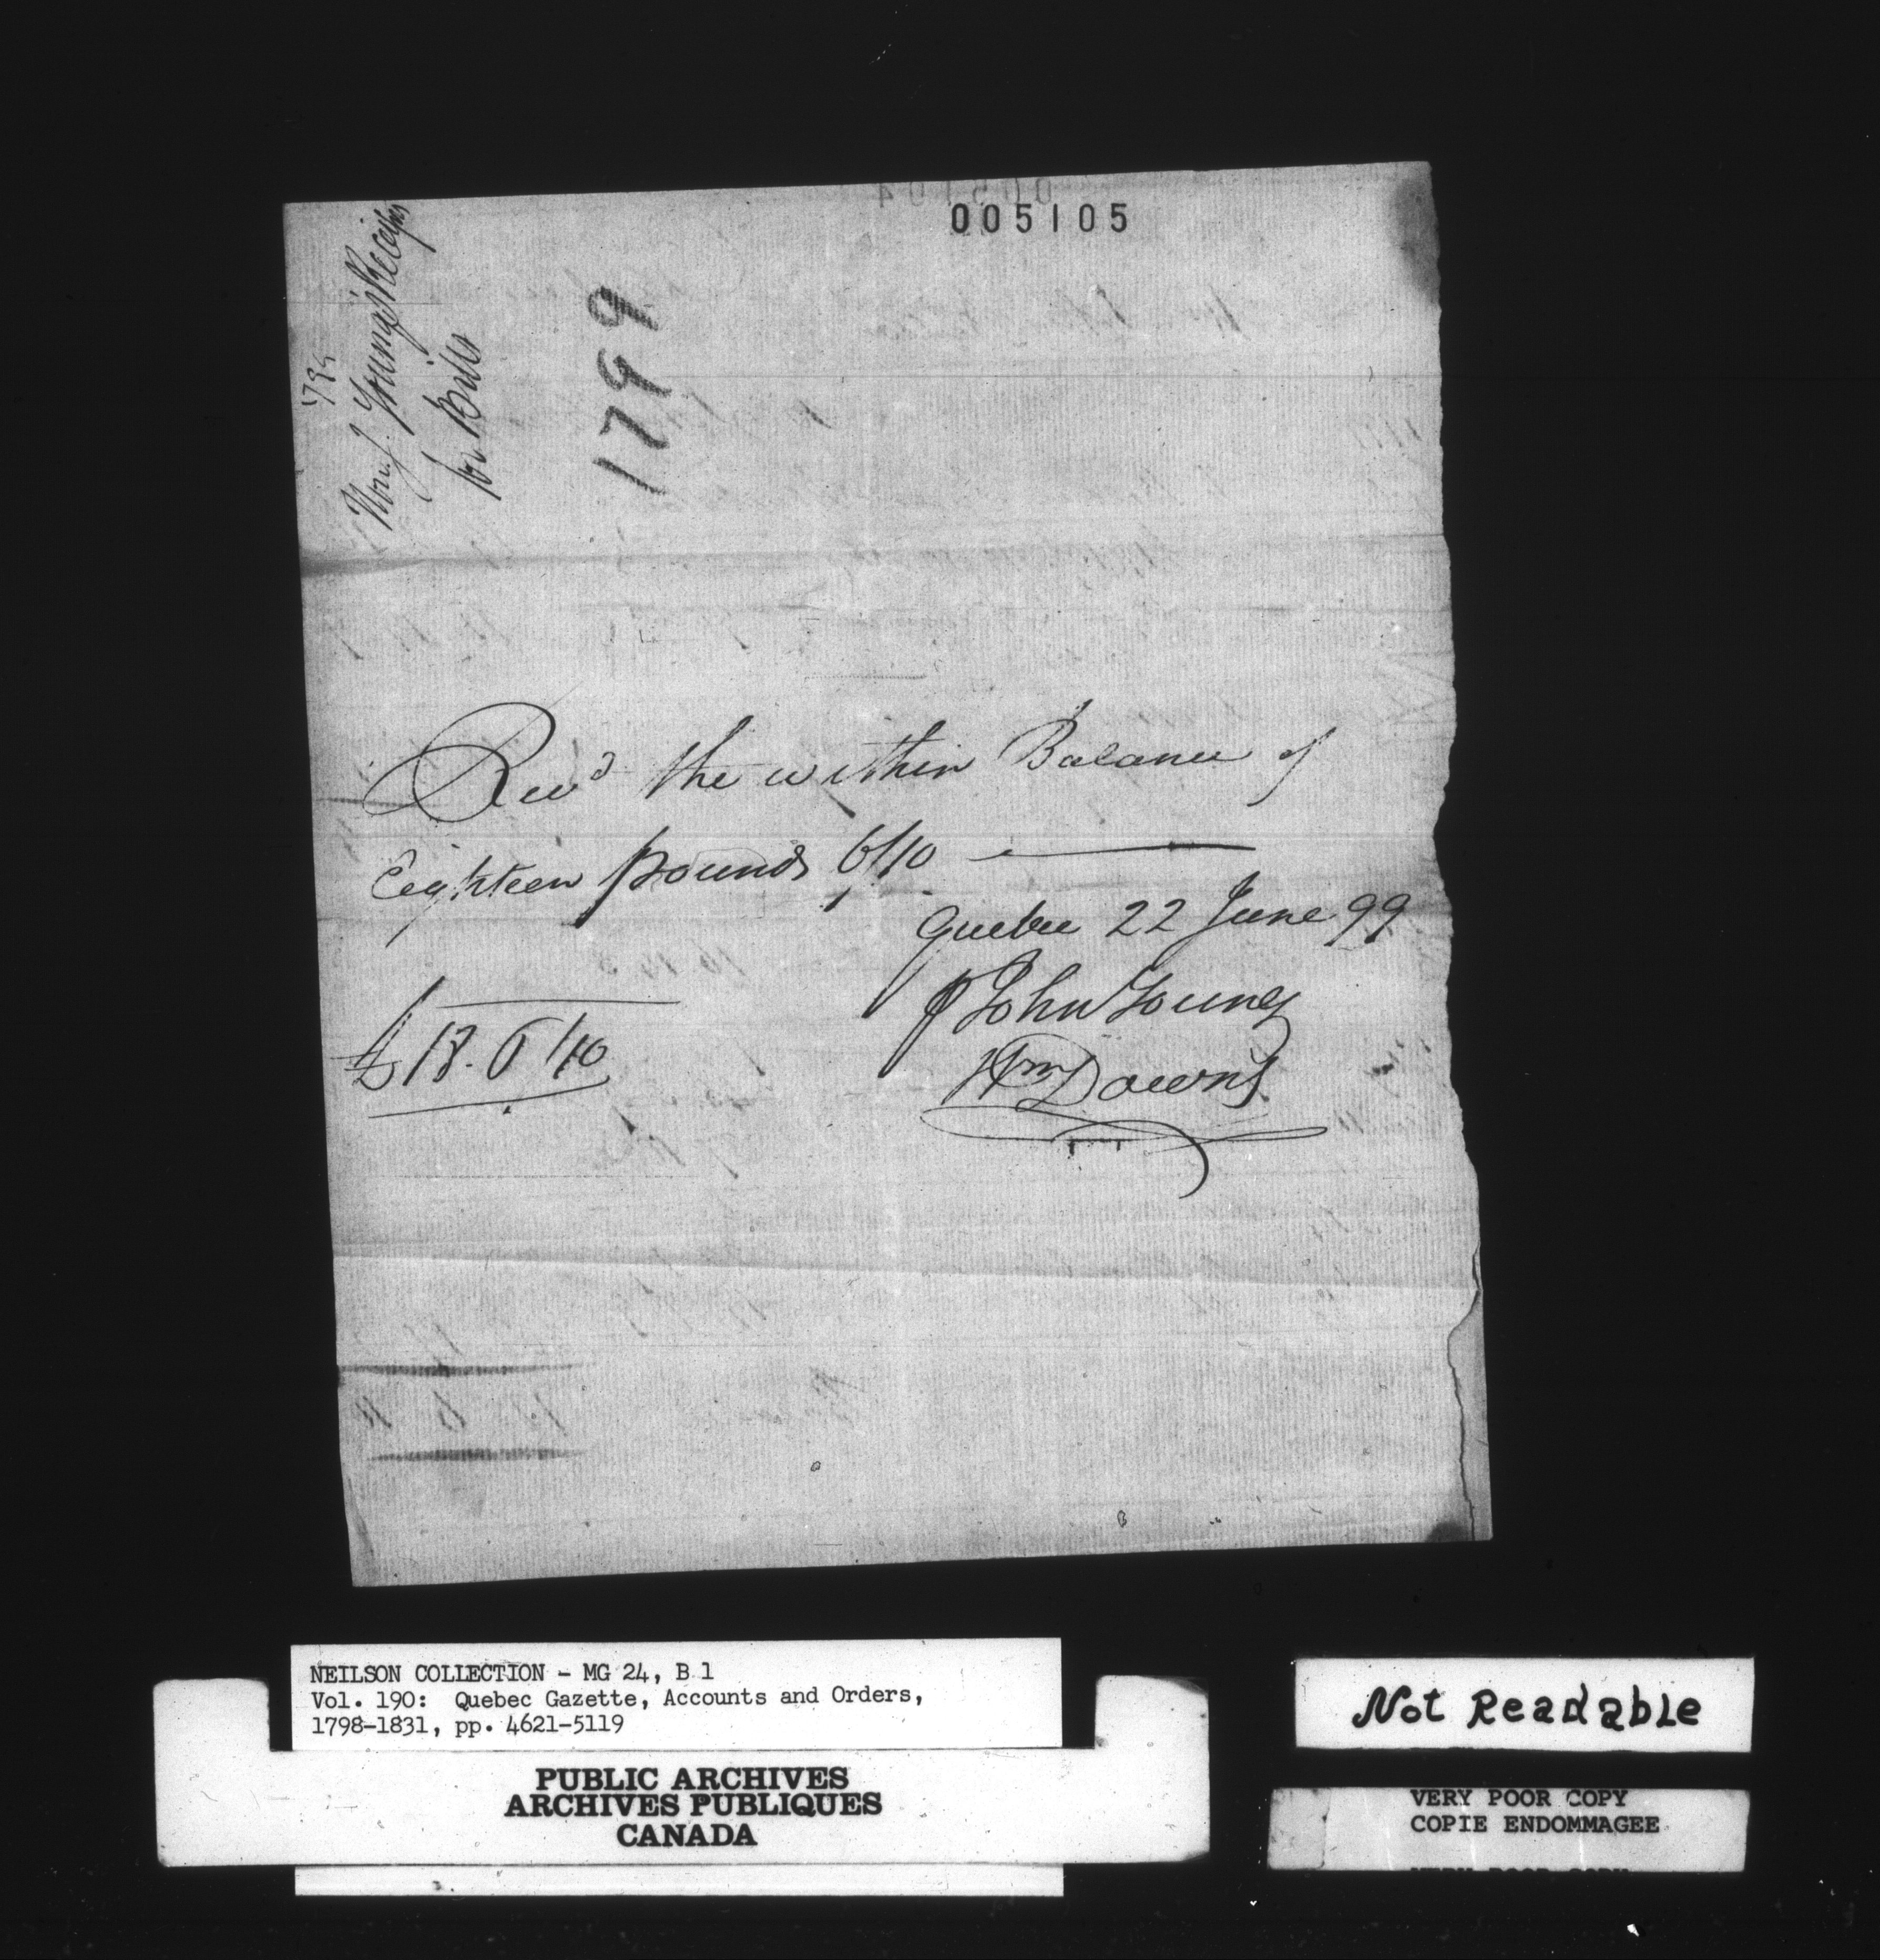 005105
1799
Hon. J. Young's Receipt
for Bills
1799
Recd the within Balance of
Eighteen pounds 6/10
Quebec 22 June 99
£18.6/10
p John Young
Wm Downs
NEILSON COLLECTION - MG 24, B 1
Vol. 190: Quebec Gazette, Accounts and Orders,
1798-1831, pp. 4621-5119
PUBLIC ARCHIVES
ARCHIVES PUBLIQUES
CANADA
Not Readable
VERY POOR COPY
COPIE ENDOMMAGEE
VERY POOR COPY